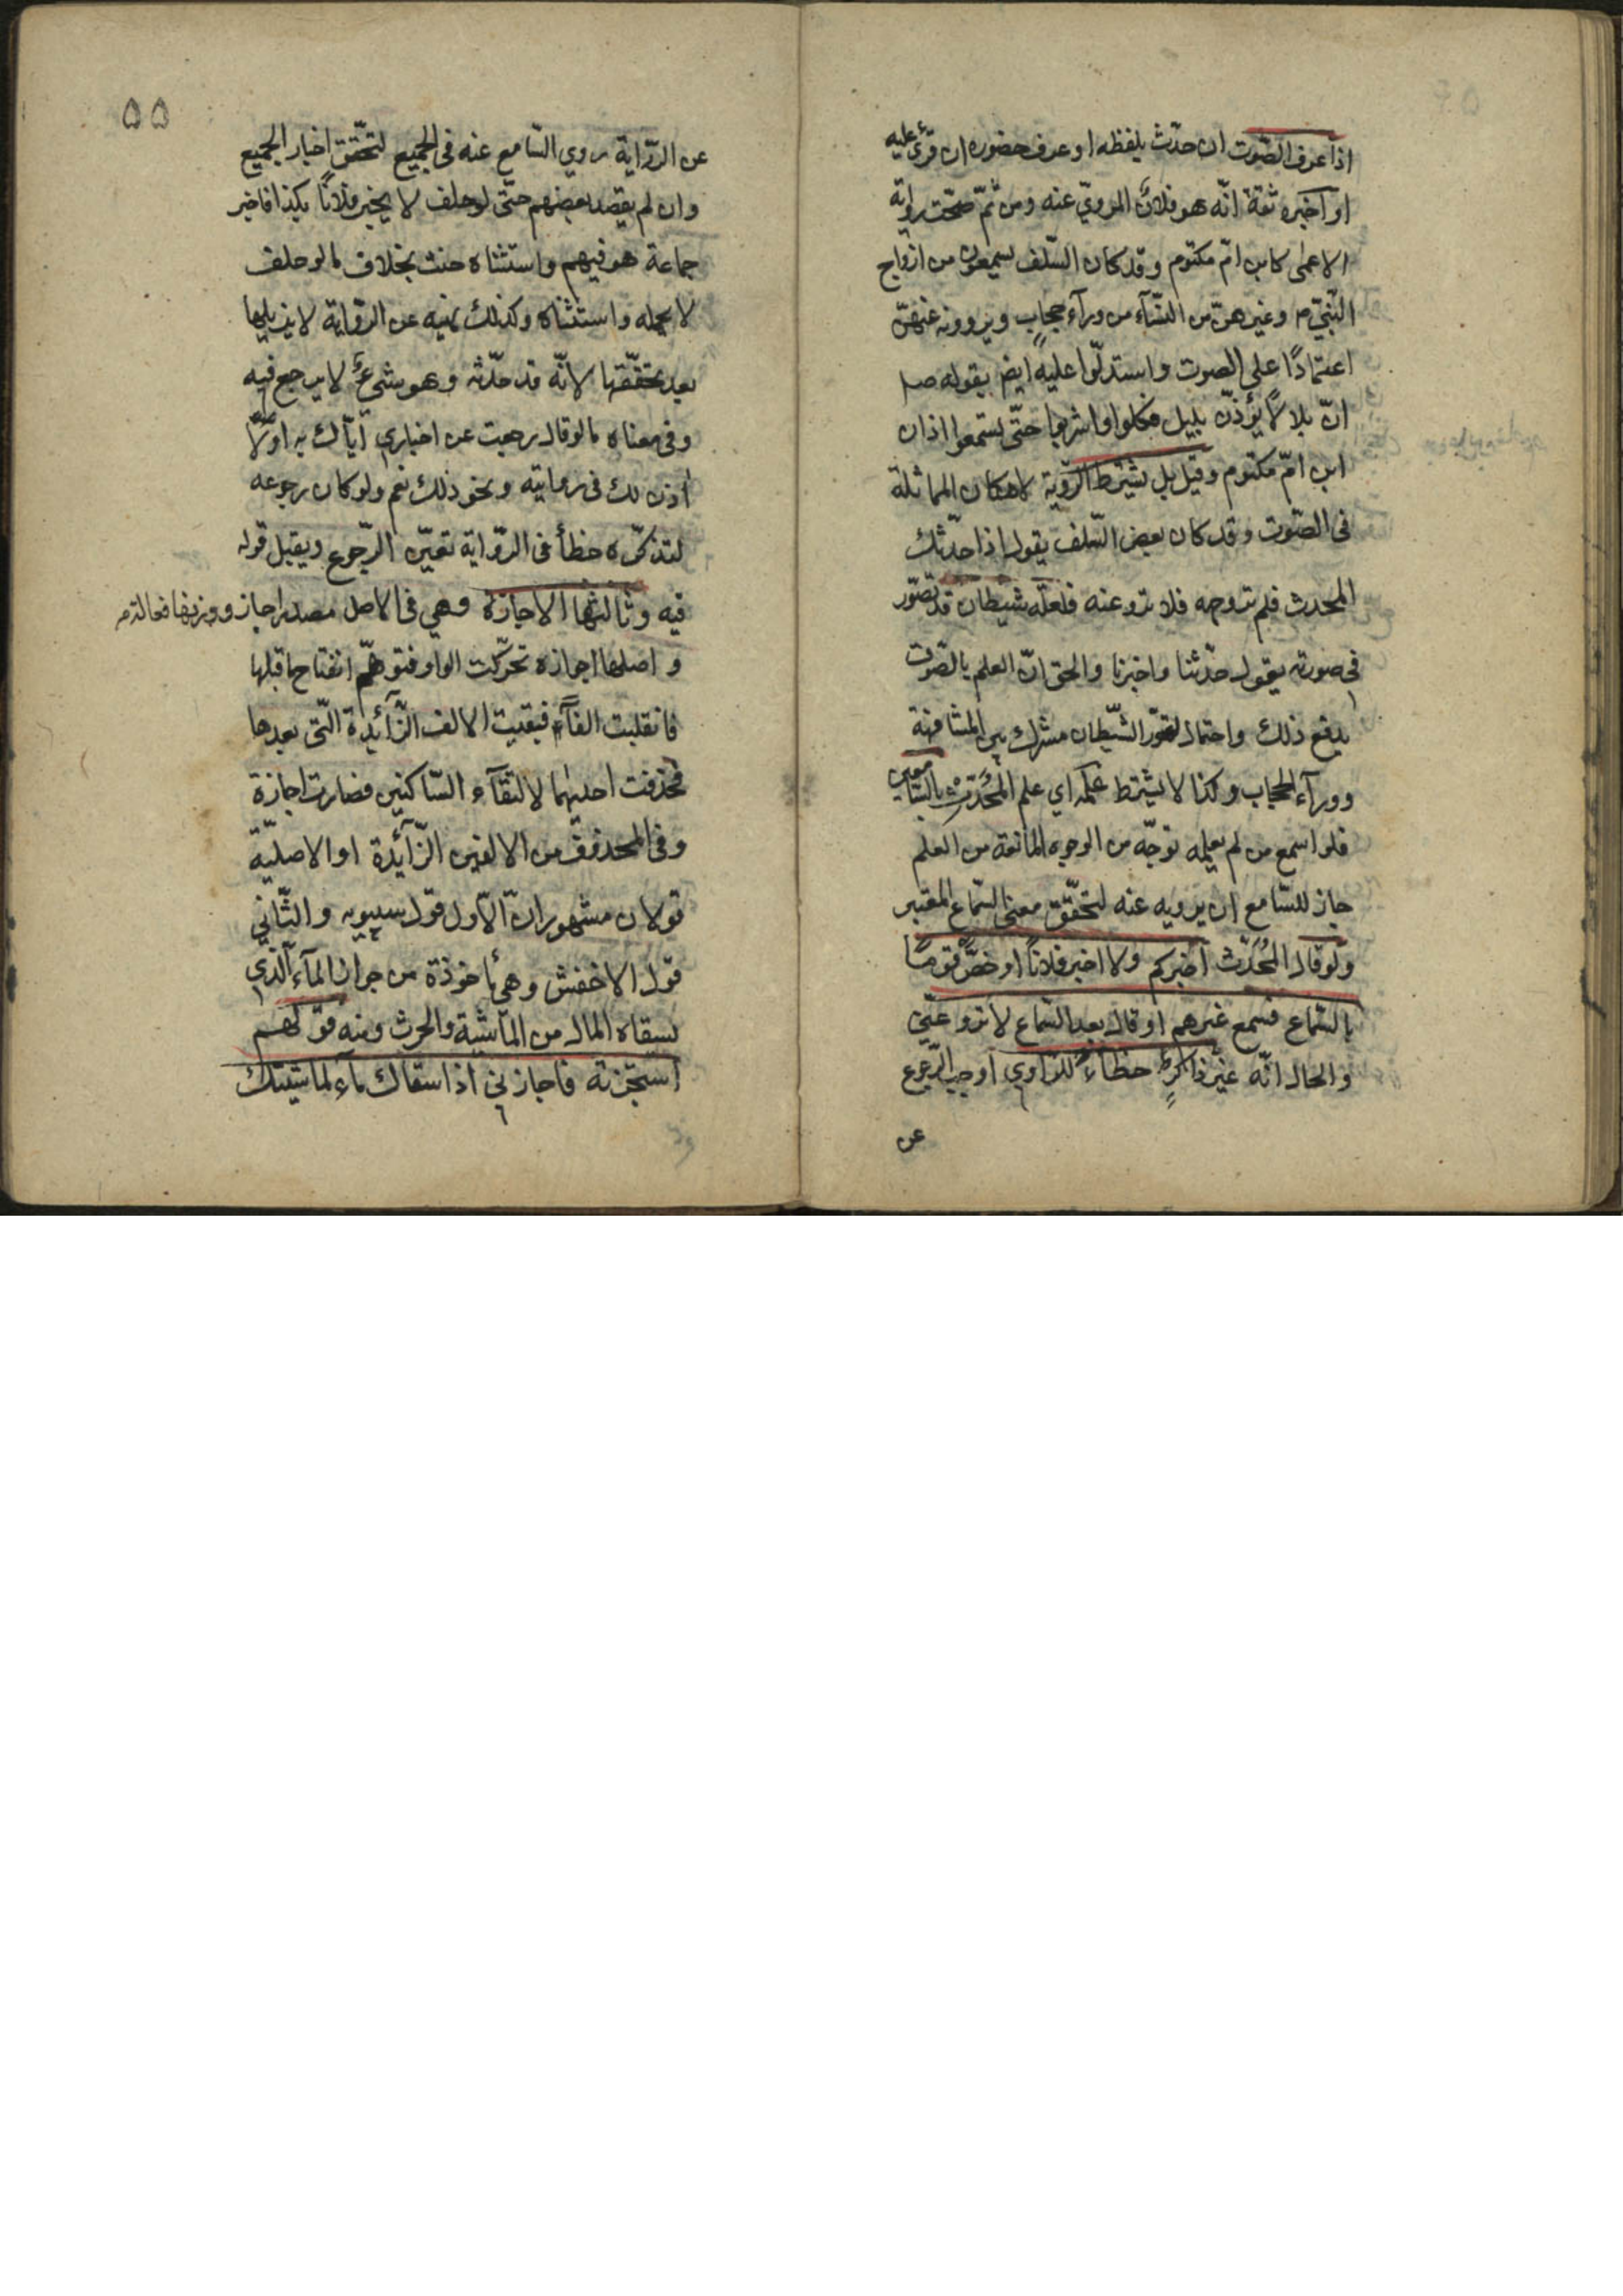 اذا عرف الصّوت ان حدّث بلفظه او عرف حضوره ان قرئ عليه
او اخبره ثقة انّه هو فلان المرويّ عنه ومن ثمّ صحّت رواية
الاعمى كابن امّ مكتوم وقد كان السّلف يسمعون من ازواج
النّبيّ م وغيرهنّ من النّسآء من ورآء حجاب ويروونه عنهنّ
اعتمادًا على الصوت واستدلّوا عليه ايض بقوله ص
انّ بلالًا يؤذّن بليل فكلوا واشربوا حتّى تسمعوا اذان
ابن امّ مكتوم وقيل بل يشترط الرّؤية لامكان المماثلة
فى الصّوت وقد كان بعض السّلف يقول اذا حدّثك
المحدث فلم تر وجهه فلا ترو عنه فلعلّه شيطان قد تصوّر
فى صورته يقول حدّثنا واخبرنا والحق انّ العلم بالصّوت
يدفع ذلك واحتمال تصوّر الشّيطان مشترك بين المشافهة
وورآء الحجاب وكذا لا يشترط علمه اي علم المُحَدّث بالسّامعين
فلو اسمع من لم يعلمه بوجه من الوجوه المانعة من العلم
جاز للسّامع ان يرويه عنه لتحقّق معنى السّماع المعتبر
ولو قال المُحَدّث اخبركم ولا اخبر فلانًا او خصّ قومًا
بالسّماع فسمع غيرهم او قال بعد السّماع لا ترو عنّي
والحال انّه غير ذاكرٍ خطاءً للرّاوي اوجب الرّجوع
عن
۵۵
عن الرّواية روي السّامع عنه فى الجميع لتحقّق اخبار الجميع
وان لم يقصد بعضهم حتّى لو حلف لا يخبر فلانًا بكذا فاخبر
جماعة هو فيهم واستثناه حنث بخلاف ما لو حلف
لا يكلمه واستثناه وكذلك نهيه عن الرّواية لا يزيلها
بعد تحقّقها لانّه قد حدّثه وهو شيء لا يرجع فيه
وفى معناه ما لو قال رجعت عن اخباري ايّاك به اولا
اذن لك فى روايته ونحو ذلك نعم ولو كان رجوعه
لتذكّره خطأ فى الرّواية تعيّن الرّجوع ويقبل قوله
فيه وثالثها الاجازة وهي فى الاصل مصدر اجاز ووزنها فعالة
واصلها اجوازه تحرّكت الواو فتوهّم انفتاح ما قبلها
فانقلبت الفًا فبقيت الالف الزّآئدة الّتى بعدها
فحذفت احديهما لالتقآء السّاكنين فصارت اجازة
وفى المحذوف من الالفين الزّآئدة او الاصليّة
قولان مشهوران الاّول قول سيبويه والثّاني
قول الاخفش وهي مأخوذة من جواز المآء الّذي
يسقاه المال من المآشية والحرث ومنه قولهم
استجزته فاجازني اذا سقاك مآء لماشيتك